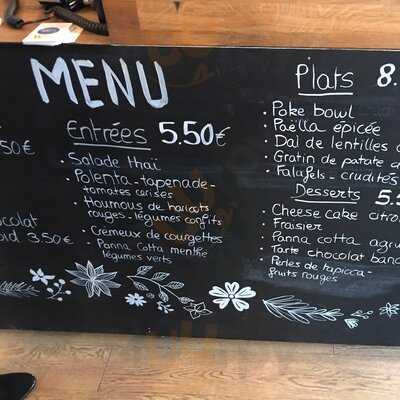 MENU
50€
ocolat
oid 3.50€
Entrées 5.50€
• Salade thaï
• Polenta - tapenade -
tomates cerises
• Houmous de haricots
rouges - légumes confits
• Crémeux de courgettes
• Panna Cotta menthe
légumes verts
Plats 8.
• Poke bowl
• Paëlla épicée
• Dal de lentilles
• Gratin de patate
• Falafels - crudités
Desserts 5.
• Cheese cake citro
• Fraisier
• Panna cotta agru
• Tarte chocolat bana
• Perles de tapioca -
fruits rouges